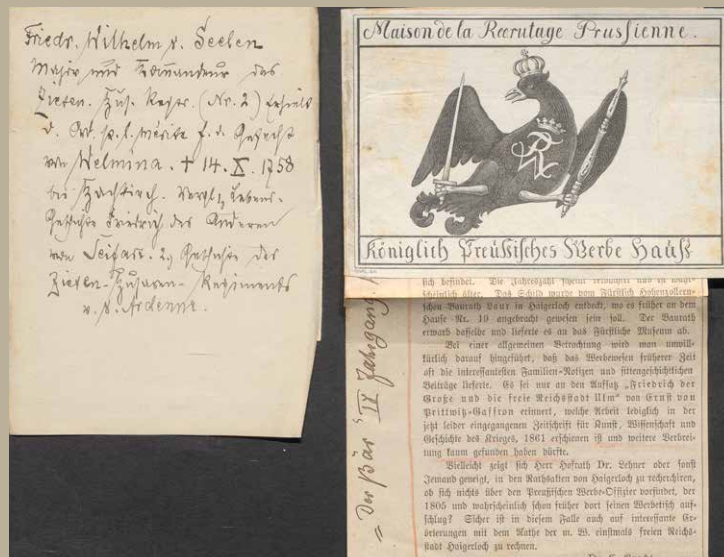 Friedr. Wilhelm v. Seelen
Major und Kommandeur des
Zieten. Hus. Regts. (Nr. 2) Erhielt
d. Ord. p. l. mérite f. d. Gefecht
von Welmina. † 14. X. 1758
bei Hochkirch. Vergl. 1, Lebens-
Geschichte Friedrich des Anderen
von Seifart. 2, Geschichte des
Zieten-Husaren-Regiments
v. Ardenne.
Maison de la Recrutage Prussienne.
FR
Königlich Preußisches Werbe Hauß
= Der Bär IV Jahrgang
sich befindet. Die Jahreszahl scheint
scheinlich älter. Das Schild wurde vom Fürstlich Hohenzollern-
schen Baurath Laur in Haigerloch entdeckt, wo es früher an dem
Hause Nr. 19 angebracht gewesen sein soll. Der Baurath
erwarb dasselbe und lieferte es an das Fürstliche Museum ab.
Bei einer allgemeinen Betrachtung wird man unwill-
kürlich darauf hingeführt, daß das Werbewesen früherer Zeit
oft die interessantesten Familien-Notizen und sittengeschichtlichen
Beiträge lieferte. Es sei nur an den Aufsatz „Friedrich der
Große und die freie Reichsstadt Ulm“ von Ernst von
Prittwitz-Gaffron erinnert, welche Arbeit lediglich in der
jetzt leider eingegangenen Zeitschrift für Kunst, Wissenschaft und
Geschichte des Krieges, 1861 erschienen ist und weitere Verbrei-
tung kaum gefunden haben dürfte.
Vielleicht zeigt sich Herr Hofrath Dr. Lehner oder sonst
Jemand geneigt, in den Rathsakten von Haigerloch zu recherchiren,
ob sich nichts über den Preußischen Werbe-Offizier vorfindet, der
1805 und wahrscheinlich schon früher dort seinen Werbetisch auf-
schlug? Sicher ist in diesem Falle auch auf interessante Er-
örterungen mit dem Rathe der m. W. einstmals freien Reichs-
stadt Haigerloch zu rechnen.